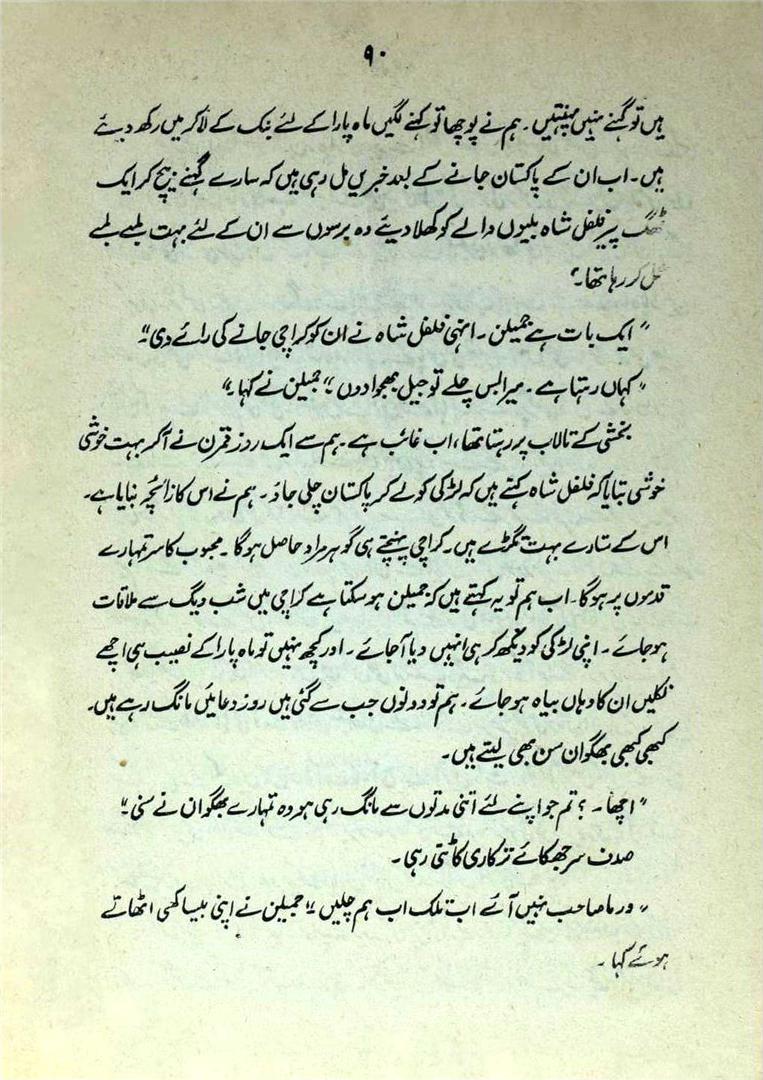 ۹۰
ہیں تو گہنے نہیں پہنتیں۔ ہم نے پوچھا تو کہنے لگیں ماہ پارا کے لئے بنک کے لاکر میں رکھ دیئے
ہیں۔ اب ان کے پاکستان جانے کے بعد خبریں مل رہی ہیں کہ سارے گہنے بیچ کر ایک
ٹھگ پیر فلفل شاہ بلیوں والے کو کھلا دیئے وہ برسوں سے ان کے لئے بہت لمبے لمبے
عمل کر رہا تھا۔"
"ایک بات ہے جمیلن۔ انہی فلفل شاہ نے ان کو کراچی جانے کی رائے دی"
"کہاں رہتا ہے۔ میرا بس چلے تو جیل بھجوا دوں" جمیلن نے کہا۔"
بخشی کے تالاب پر رہتا تھا، اب غائب ہے۔ ہم سے ایک روز قمرن نے آکر بہت خوشی
خوشی بتایا کہ فلفل شاہ کہتے ہیں کہ لڑکی کو لے کر پاکستان چلی جاؤ۔ ہم نے اس کا زائچہ بنایا ہے۔
اس کے ستارے بہت تگڑے ہیں۔ کراچی پہنچتے ہی گوہر مراد حاصل ہوگا۔ محبوب کا سر تمہارے
قدموں پر ہوگا۔ اب ہم تو یہ کہتے ہیں کہ جمیلن ہو سکتا ہے کراچی میں شب دیگ سے ملاقات
ہو جائے۔ اپنی لڑکی کو دیکھ کر ہی انہیں دیا آجائے۔ اور کچھ نہیں تو ماہ پارا کے نصیب ہی اچھے
نکلیں ان کا وہاں بیاہ ہو جائے۔ ہم تو دونوں جب سے گئی ہیں روز دعائیں مانگ رہے ہیں۔
کبھی کبھی بھگوان سن بھی لیتے ہیں۔
"اچھا۔ ؟ تم جو اپنے لئے اتنی مدتوں سے مانگ رہی ہو وہ تمہارے بھگوان نے سنی"
صدف سر جھکائے ترکاری کاٹتی رہی۔
"ورما صاحب نہیں آئے اب تلک اب ہم چلیں" جمیلن نے اپنی بیساکھی اٹھاتے
ہوئے کہا۔